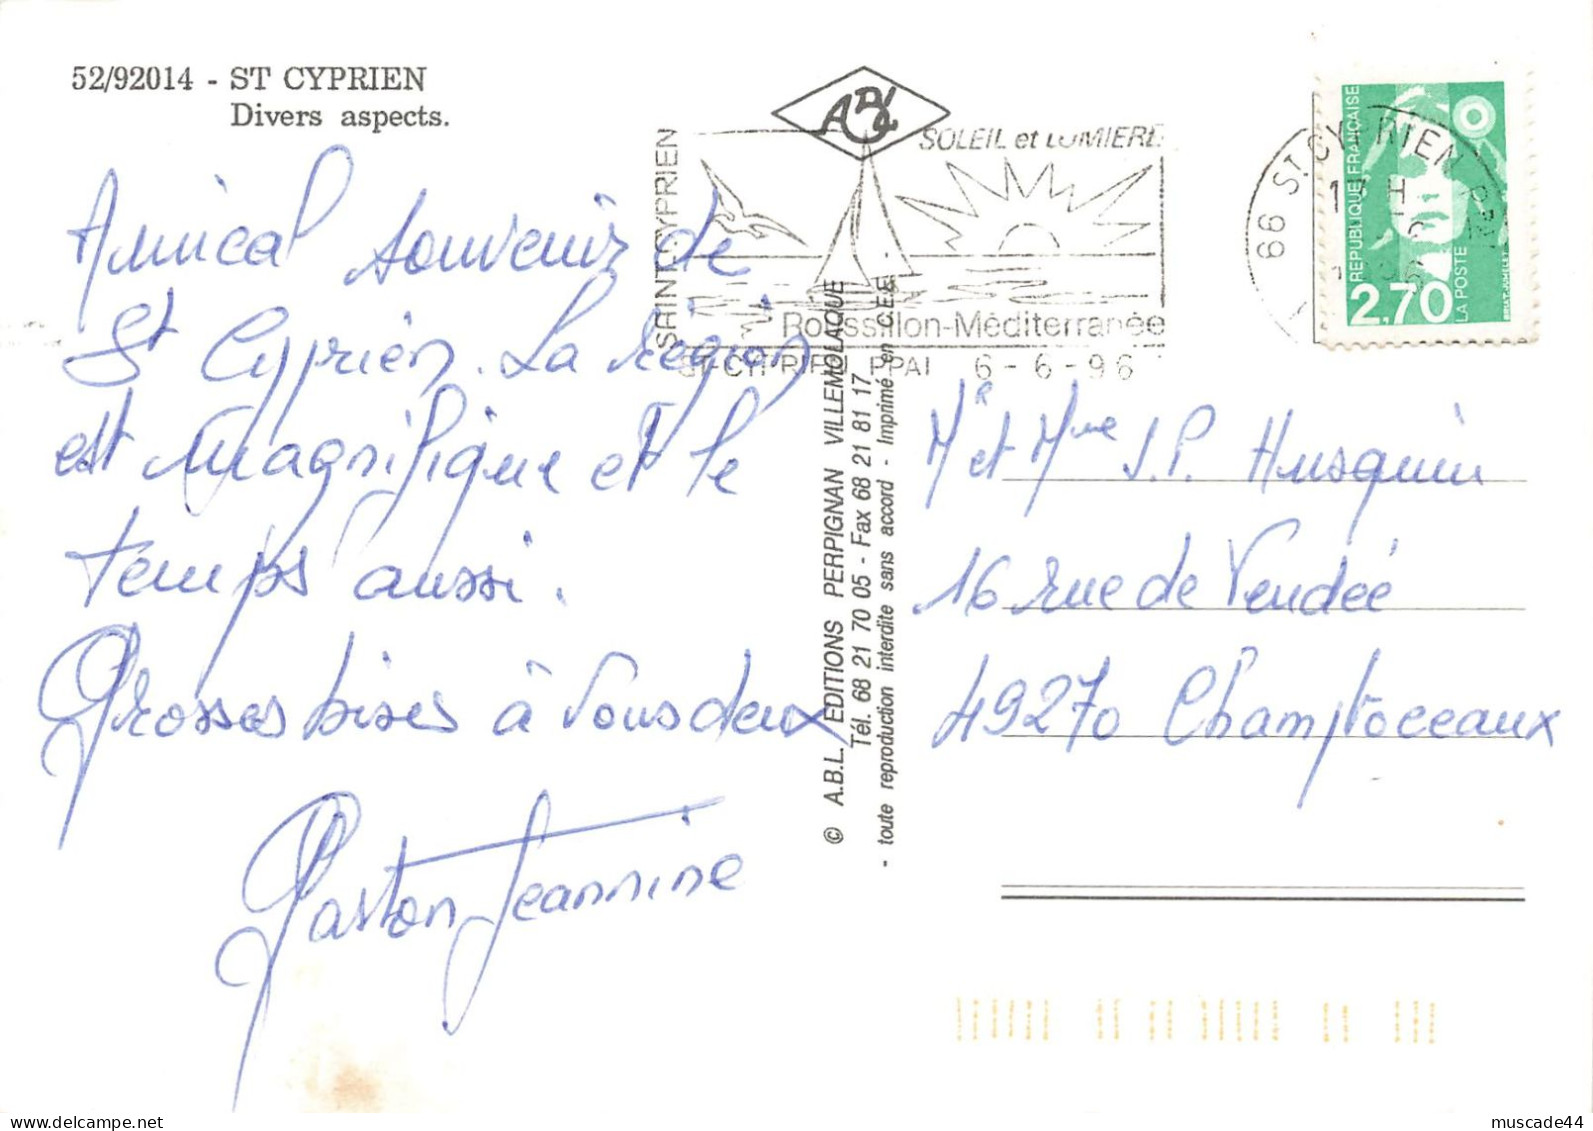 52/92014 - ST CYPRIEN
Divers aspects.
Amical souvenir de
St Cyprien. La région
est magnifique et le
temps aussi.
Grosses bises à vous deux
Gaston Jeannine
ABL
SAINT CYPRIEN
SOLEIL et LUMIERE
Roussillon-Méditerranée
ST-CYPRIEN PPAL 6-6-96
© A.B.L. EDITIONS PERPIGNAN VILLEMOLAQUE
Tél. 68 21 70 05 - Fax 68 21 81 17
- toute reproduction interdite sans accord - Imprimé en C.E.E. -
66 ST CYPRIEN
REPUBLIQUE FRANÇAISE
2,70
LA POSTE
BRIAT-JUMELET
Mr et Mme J.P. Husquin
16 rue de Vendée
49270 Champtoceaux
muscade44